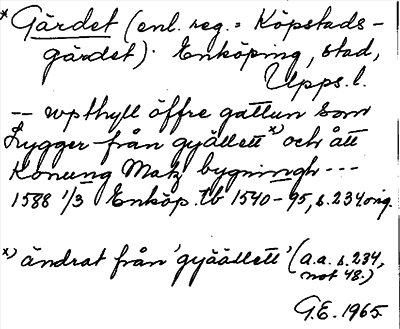 * Gärdet (enl. reg. = Köpstads-
gärdet). Enköping, stad,
Upps. l.
-- wpthyll öffre gattun som
lygger från gyällett x) och ått
Konung Matz bygningh ---
1588 1/3 Enköp. tb 1540-95, s. 234 orig.
x) ändrat från 'gyäällett' (a.a. s. 234,
not 48.)
G.E. 1965.